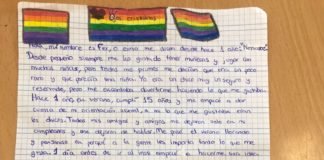 Hola, mi nombre es Fer, o como me dicen desde hace 1 años "Hermione".
Desde pequeño siempre me ha gustado tener muñecas y jugar con
muchas niñas, pero todos mis primos me decían que era un poco
raro y que parecía una niña. Yo era un chico muy
reservado, pero me encantaba divertirme haciendo lo que me gustaba.
Hace 1 año en verano, cumplí 15 años y me empecé a dar
cuenta de mi orientación sexual, a mí lo que me gustaban eran
los chicos. Todos mis amigos y amigas me dejaron solo en mi
cumpleaños y me dejaron de hablar. Me pasé el verano llorando
y pensando en porqué a la gente les importa tanto lo que me
gusta. 1 día antes de ir al insti empecé a hacerme